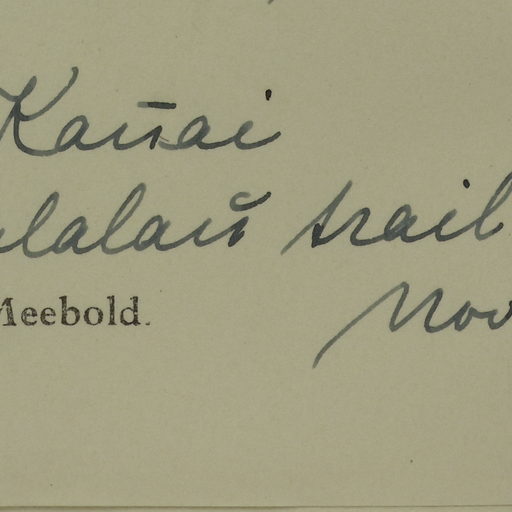 Kauai
alalau trail
Meebold.
Nov